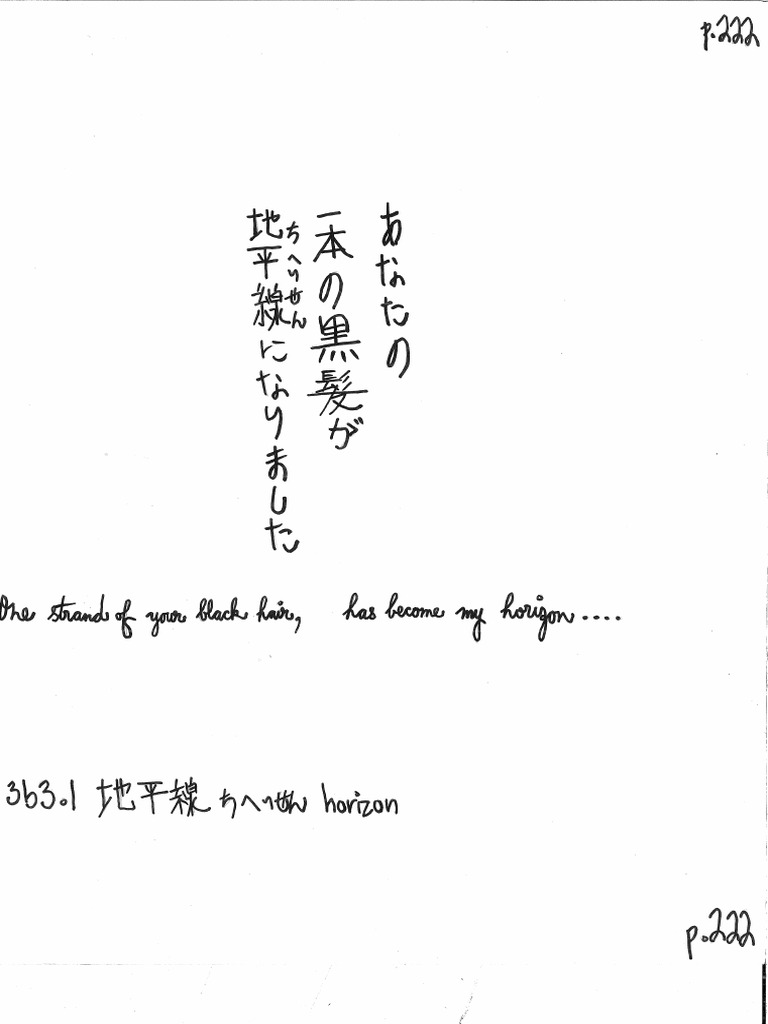 p.222
あなたの
一本の黒髪が
地平線になりました
ちへいせん
One strand of your black hair, has become my horizon....
363.1 地平線 ちへいせん horizon
p.222